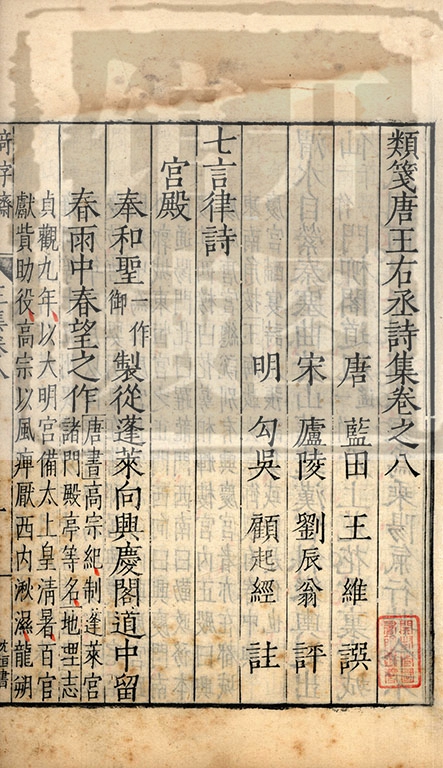 類箋唐王右丞詩集卷之八
唐 藍田 王維 譔
宋 廬陵 劉辰翁 評
明 勾吳 顧起經 註
七言律詩
宮殿
奉和聖御一作製從蓬萊向興慶閣道中留
春雨中春望之作唐書高宗紀制蓬萊宮
諸門殿亭等名地理志
貞觀九年以大明宮備太上皇清暑百官
獻貲助役高宗以風痺厭西內湫濕龍朔